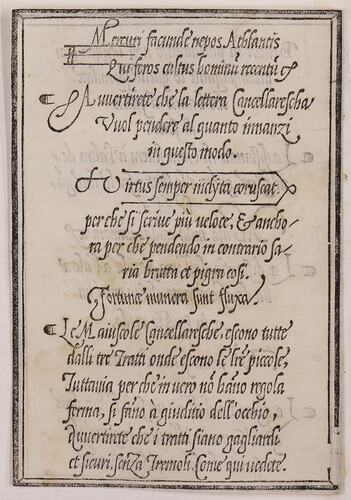 Mercuri facunde nepos Athlantis
Qui feros cultus hominũ recentũ &
Avvertirete che la lettera Cancellarescha
Vuol pendere al quanto innanzi
in questo modo.
Virtus semper inclyta coruscat.
perche si scrive più veloce, & ancho,
ra per che pendendo in contrario sa,
ria brutta et pigra così.
Fortunæ munera sunt fluxa.
Le Maiuscole Cancellaresche, escono tutte
dalli tre Tratti onde escono le lr̃e piccole,
Tuttavia per che in vero nõ hãno regola
ferma, si fãno à giuditio dell'occhio,
Avvertirete che i tratti siano gagliardi
et sicuri, senza Tremoli, Come qui vedete.